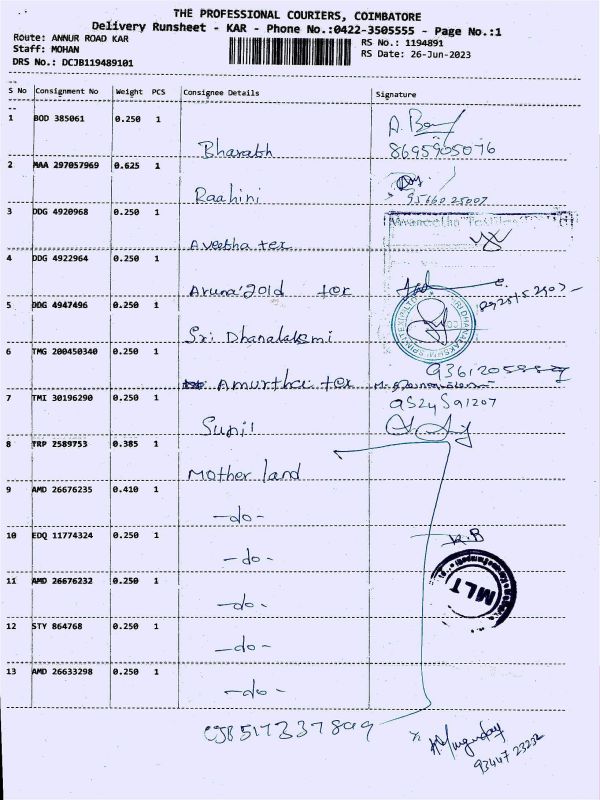 THE PROFESSIONAL COURIERS, COIMBATORE
Delivery Runsheet - KAR - Phone No.:0422-3505555 - Page No.:1
Route: ANNUR ROAD KAR
RS No.: 1194891
Staff: MOHAN
RS Date: 26-Jun-2023
DRS No.: DCJB119489101
S No Consignment No Weight PCS Consignee Details Signature
1 BOD 385061 0.250 1
Bharath 8695905076
2 MAA 297057969 0.625 1
Raahini
3 DDG 4920968 0.250 1
Aveetha tex
4 DDG 4922964 0.250 1
Aruna gold tex
5 DDG 4947496 0.250 1
Sri Dhanalaksmi
6 TMG 200450340 0.250 1
Amurtha tex
7 TMI 30196290 0.250 1
Sunil
8 TRP 2589753 0.385 1
Mother land
9 AMD 26676235 0.410 1
-do-
10 EDQ 11774324 0.250 1
-do-
11 AMD 26676232 0.250 1
-do-
12 STY 864768 0.250 1
-do-
MLT
13 AMD 26633298 0.250 1
-do-
93447 23232